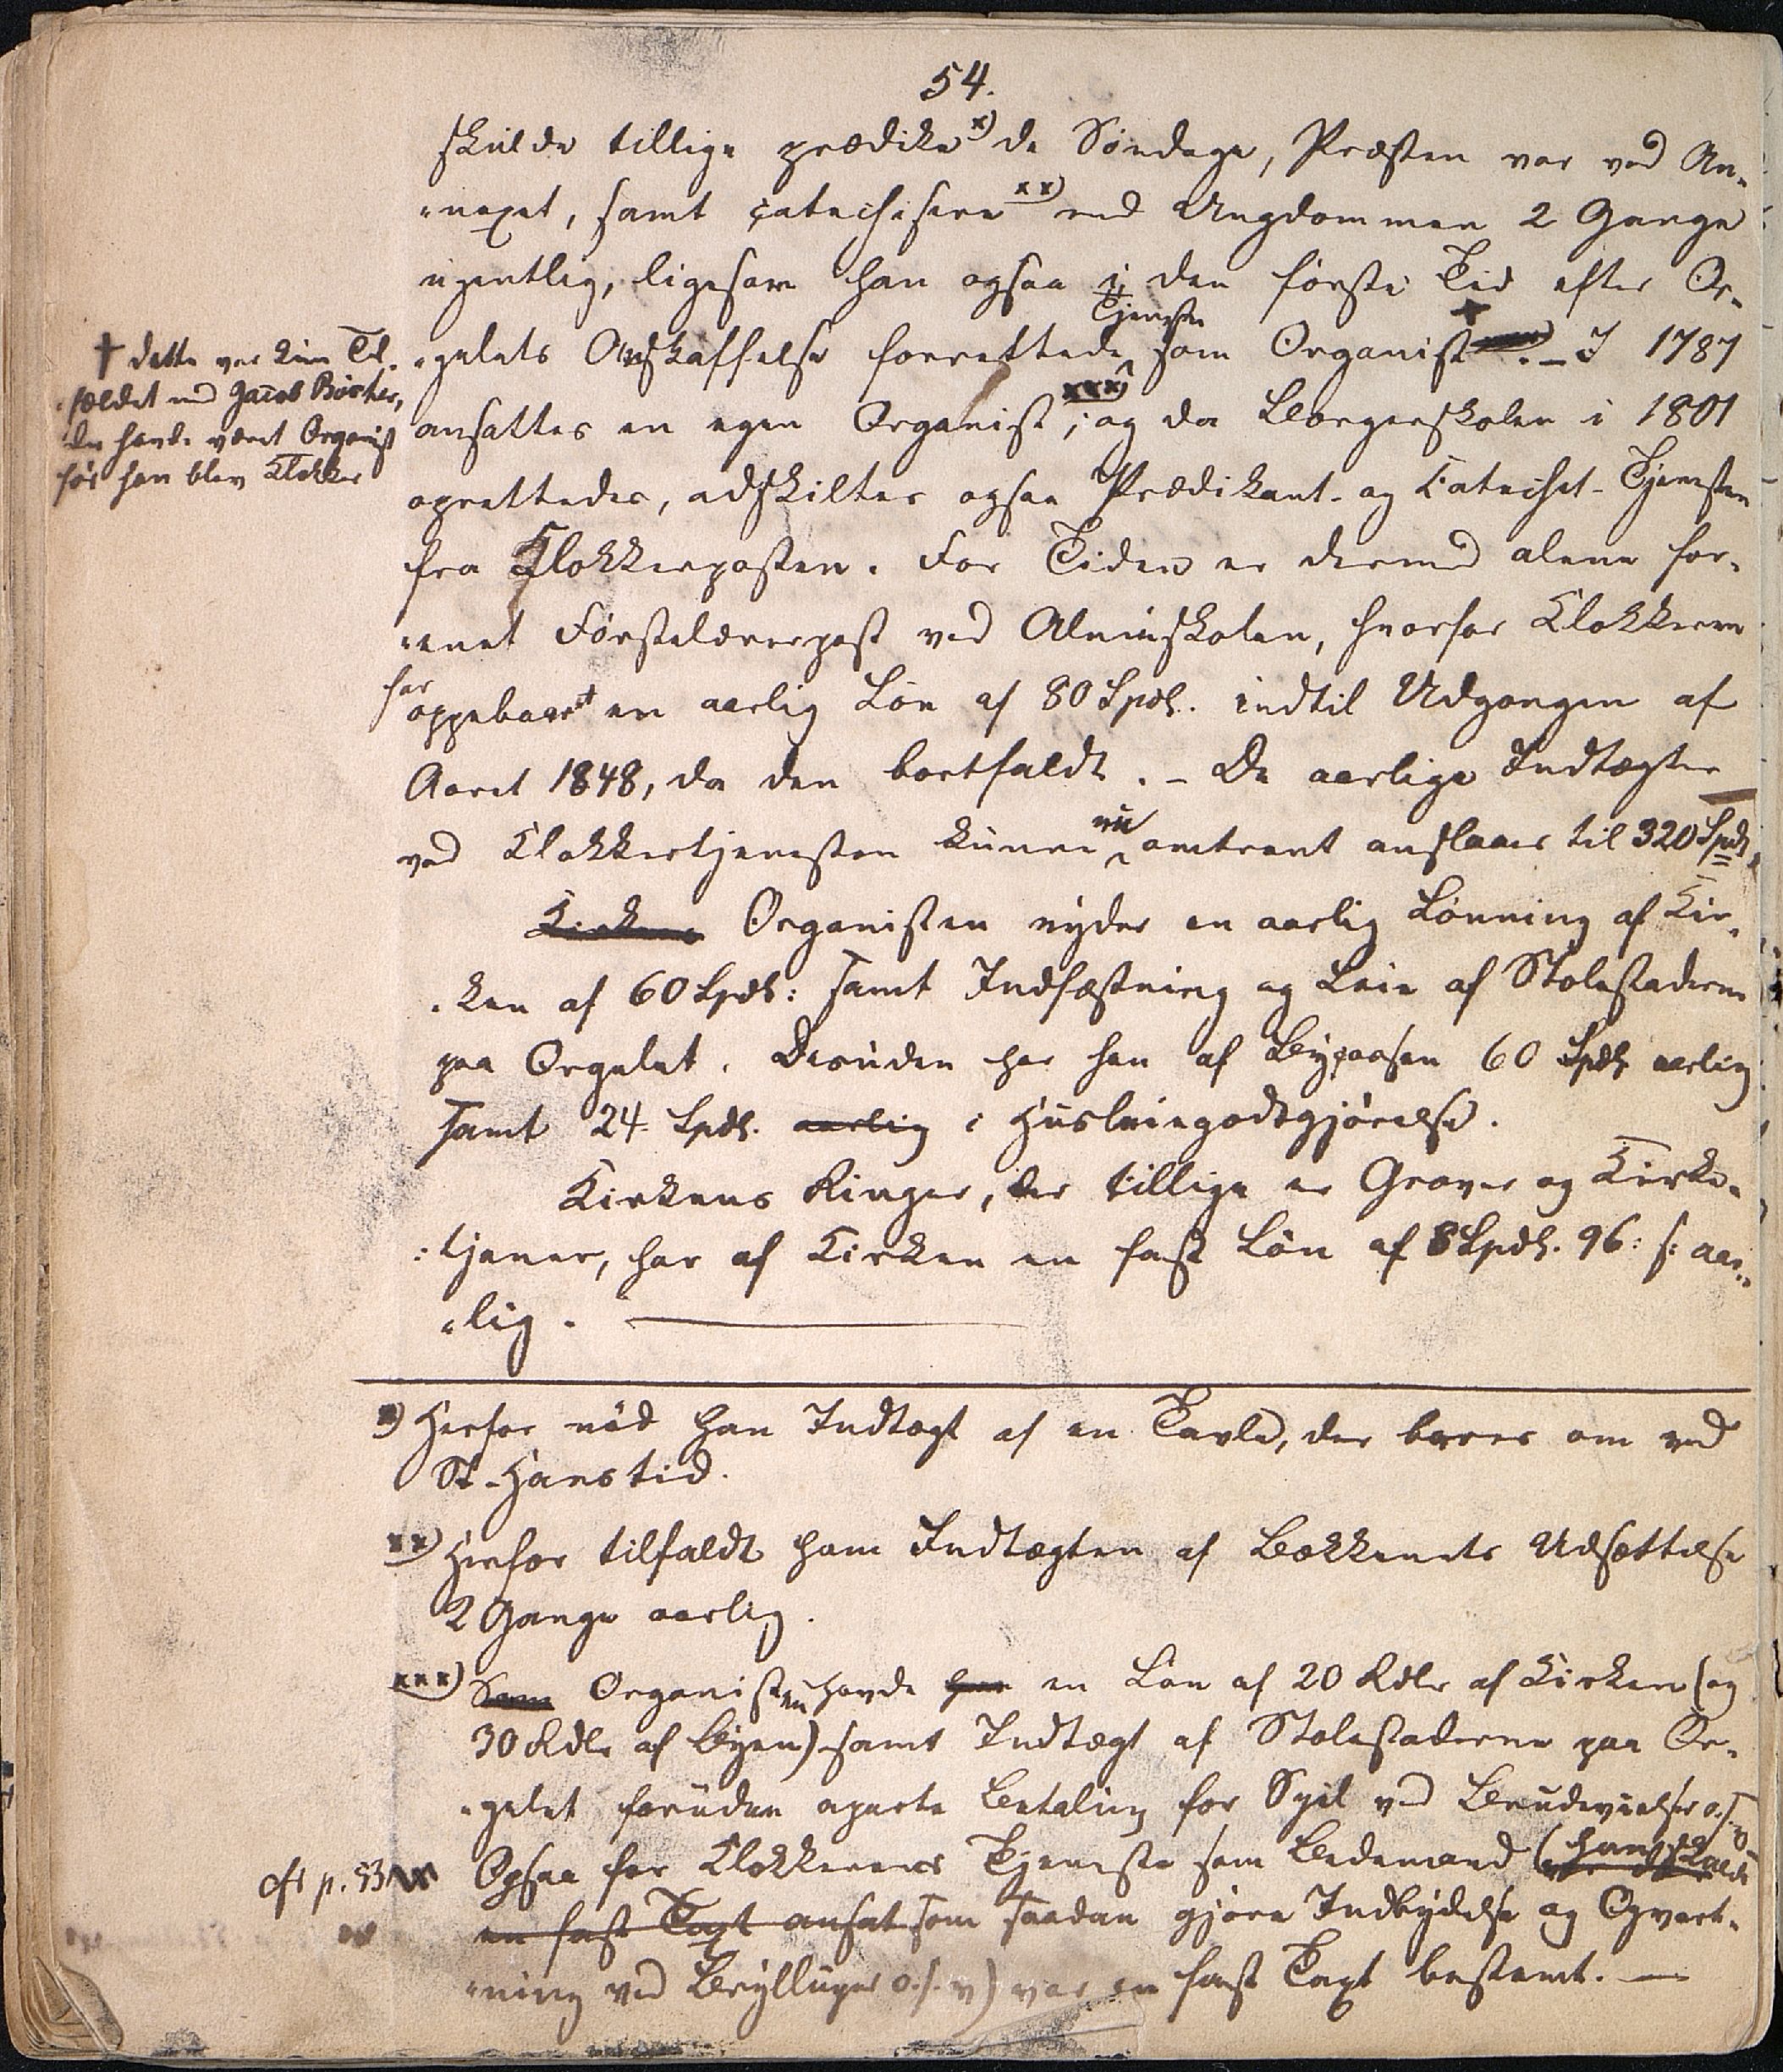 54.
skulde tillige prædike x) de Søndage, Præsten var ved An-
nexet, samt catechisere xx) med Ungdommen 2 Gange
ugentlig, ligesom han ogsaa i den første Tid efter Or-
gelets Anskaffelse forrettede Tjeneste som Organist †. – I 1787
ansattes en egen Organist xxx); og da Borgerskolen i 1801
oprettedes, adskiltes ogsaa Prædikant- og Catechet-Tjenesten
fra Klokkerposten. For Tiden er dermed alene for-
enet Førstelærerpost ved Almuskolen, hvorfor Klokkeren
har oppebaaret en aarlig Løn af 80 Spdl. indtil Udgangen af
Aaret 1848, da den bortfaldt. – De aarlige Indtægter
ved Klokkertjenesten kunne nu omtrent anslaaes til 320 Spdl.
Kirkens Organisten nyder en aarlig Lønning af Kir-
ken af 60 Spdl: samt Indfæstning og Leie af Stolestaderne
paa Orgelet. Desuden har han af Bycassen 60 Spdl aarlig
samt 24 Spdl. aarlig i Husleiegodtgjørelse.
Kirkens Ringer, der tillige er Graver og Kirke-
tjener, har af Kirken en fast Løn af 8 Spdl. 96: s: aar-
lig.
† dette var kun Til-
fældet med Jacob Børther,
der havde været Organist
før han blev Klokker
x) Herfor nød han Indtægt af en Tavle, der bæres om ved
St. Hanstid.
xx) Herfor tilfaldt ham Indtægten af Bækkenets Udsættelse
2 Gange aarlig.
xxx) Som Organisten havde han en Løn af 20 Rdlr af Kirken (og
30 Rdlr af Byen) samt Indtægt af Stolestaderne paa Or-
gelet foruden aparte Betaling for Spil ved Brudevielser o.s.v
cfr p. 53 Ogsaa for Klokkerens Tjeneste som Bedemand (han skulde
en fast Taxt ansat som saadan gjøre Indbydelse og Opvart-
ning ved Bryllupper o.s.v) var en fast Taxt bestemt. –